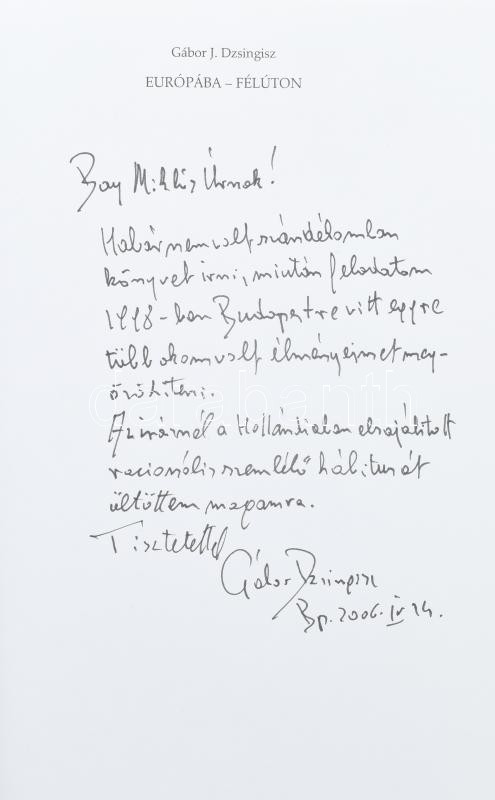 Gábor J. Dzsingisz
EURÓPÁBA – FÉLÚTON
Bay Miklós Úrnak!
Habár nem volt szándékomban
könyvet írni, miután feladatom
1998-ban Budapestre vitt egyre
több okom volt élményeimet meg-
örökíteni.
Az írásnál a Hollándiában elsajátított
racionális szemlélő hábitusát
öltöttem magamra.
Tisztelettel
Gábor Dzsingisz
Bp. 2006. IV 24.